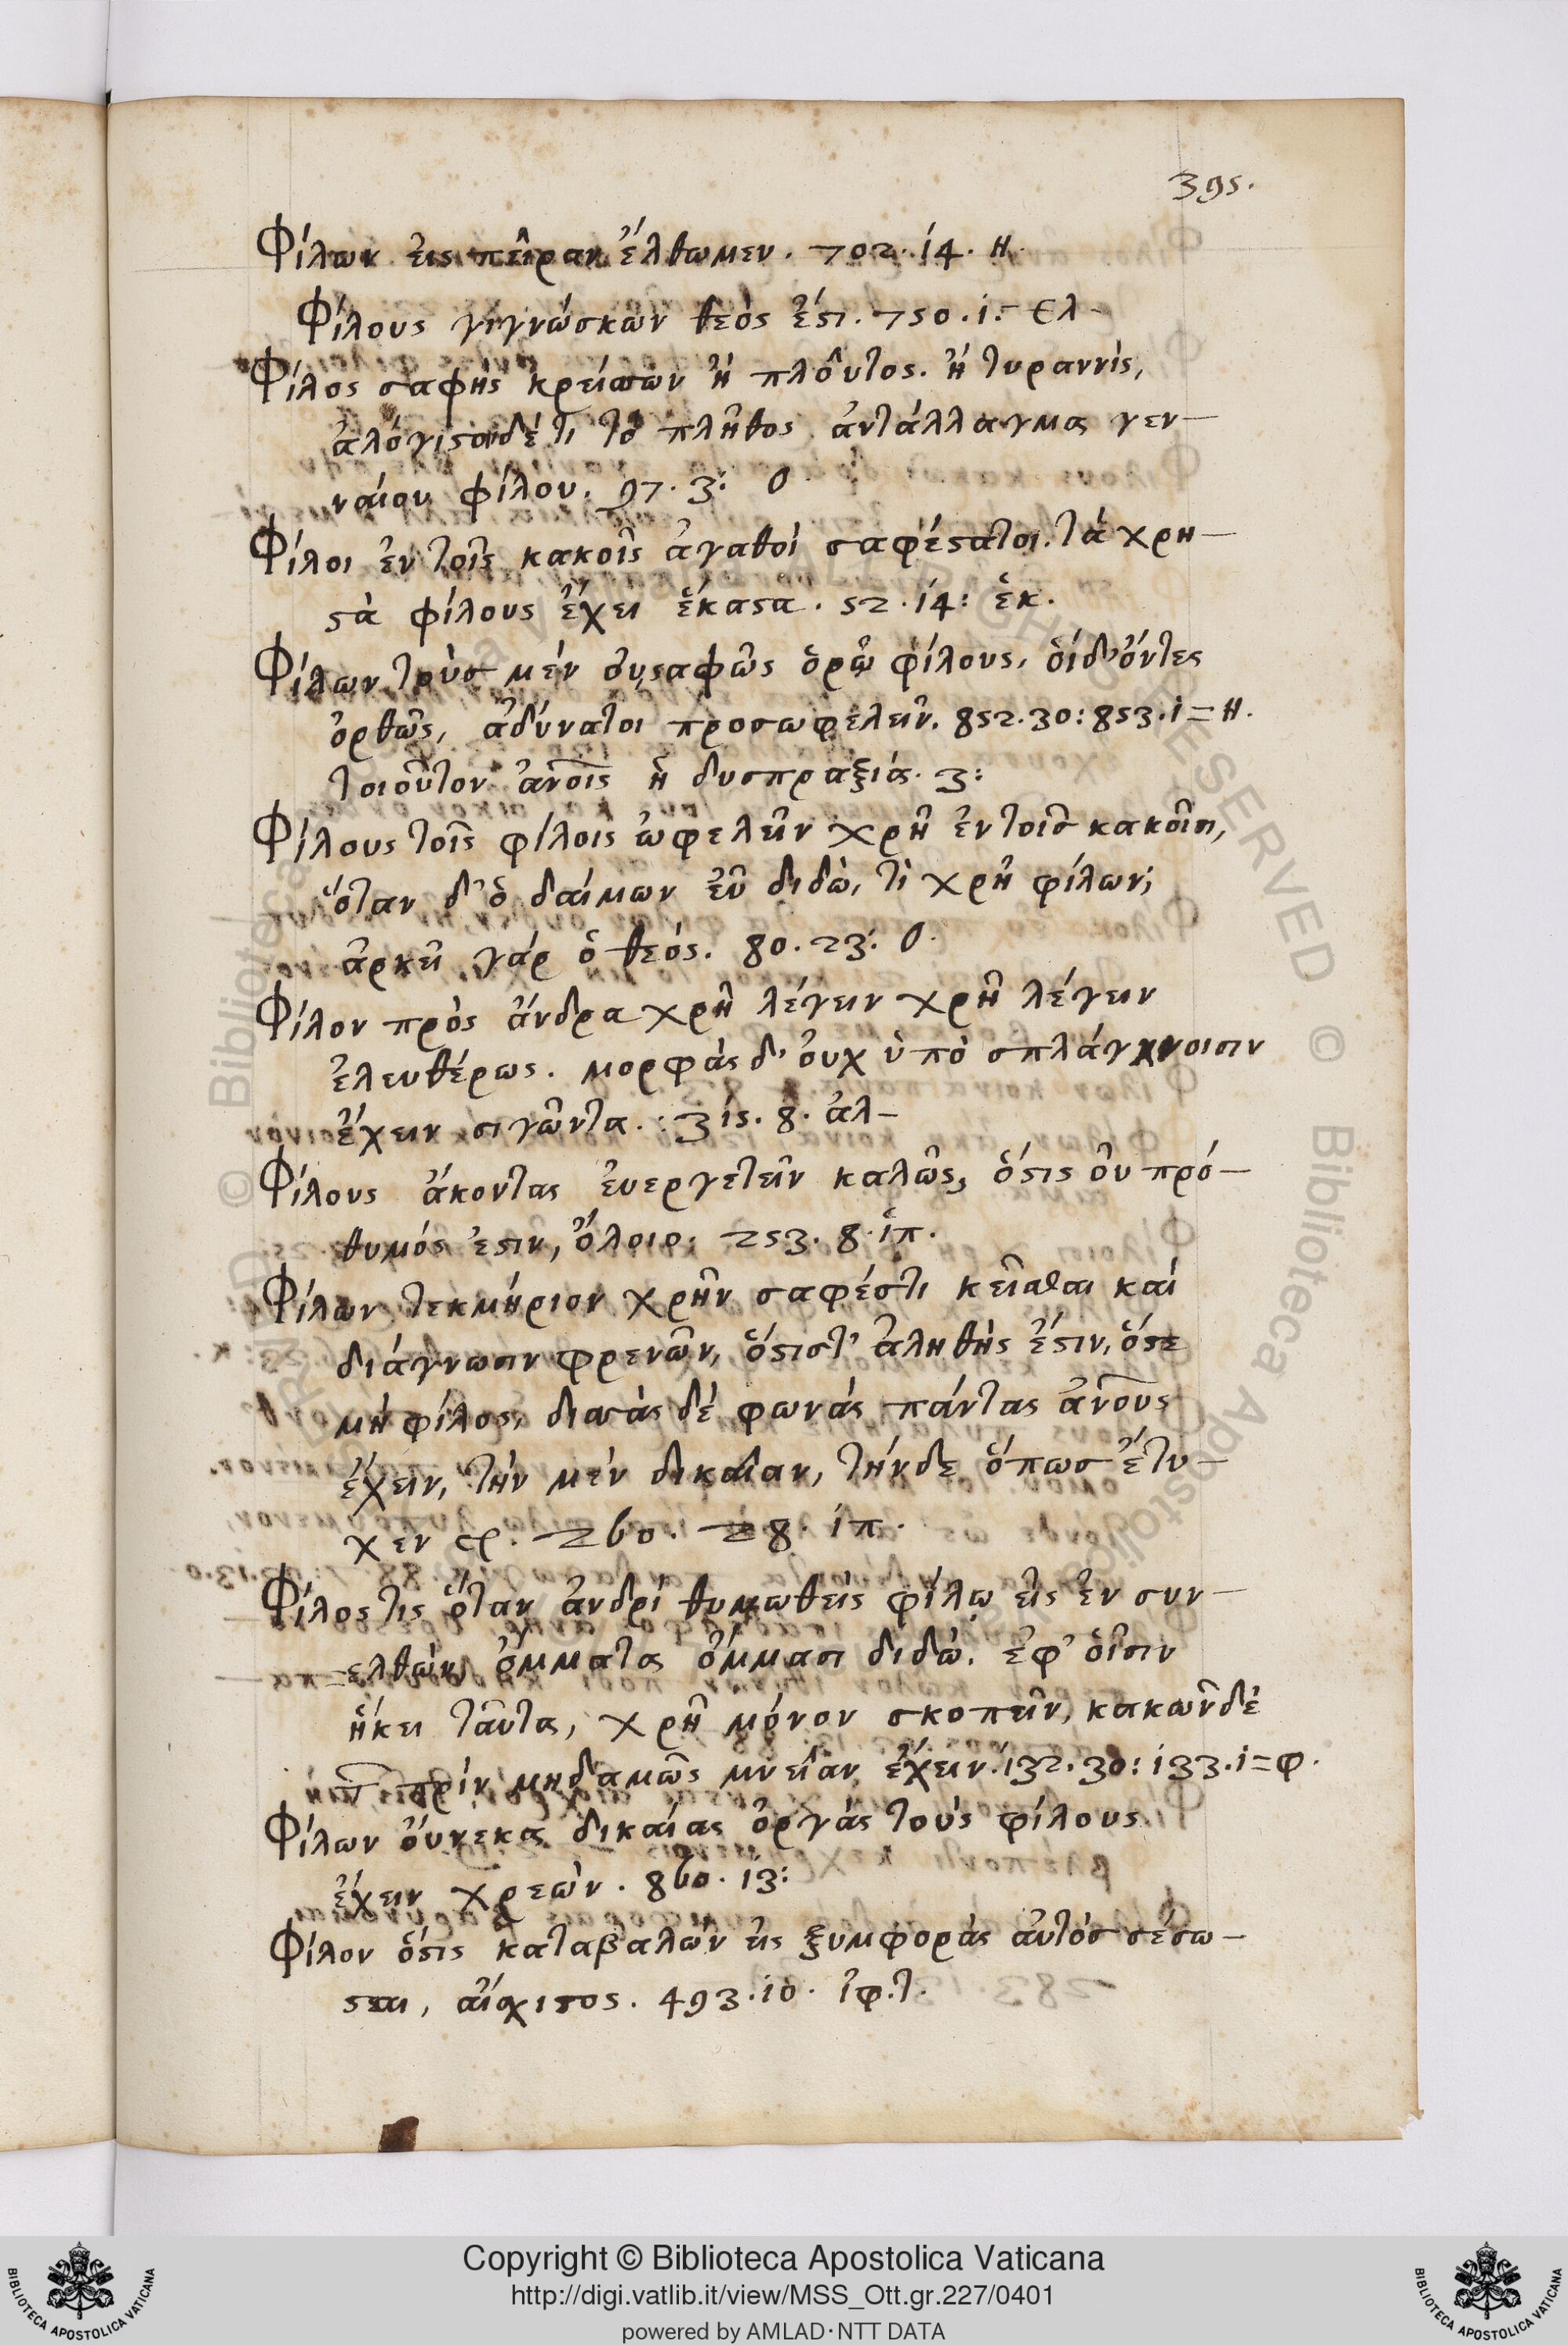 395.
Φίλων εἰς πεῖραν ἔλθωμεν. 702. 14. Η.
Φίλους γιγνώσκων θεός ἔστι. 750. 1: Ελ-
Φίλος σαφής κρείσσων ἢ πλοῦτος. ἢ τυραννὶς,
ἀλόγιστον δέ τι τὸ πλῆθος ἀντάλλαγμα γεν-
ναίου φίλου. 97. 3: Ο
Φίλοι ἐν τοῖς κακοῖς ἀγαθοὶ σαφέστατοι. τὰ χρη-
στὰ φίλους ἔχει ἕκαστα. 52. 14: ἑκ.
Φίλων τοὺσ μὲν οὐ σαφῶς ὁρῶ φίλους, οἱ δ' ὄντες
ὀρθῶς, ἀδύνατοι προσωφελεῖν. 852. 30: 853. 1 = Η.
τοιοῦτον ἀν̅οις ἡ δυσπραξιά. 3:
Φίλους τοῖς φίλοις ὠφελεῖν χρὴ ἐν τοῖσ κακοῖσι,
ὅταν δ' ὁ δαίμων εὖ διδῷ, τὶ χρὴ φίλων;
ἀρκεῖ γάρ ὁ θεός. 80. 23: Ο.
Φίλον πρὸς ἄνδρα χρὴ λέγειν χρὴ λέγειν
ἐλευθέρως. μορφὰς δ' οὐχ ὑπὸ σπλάγχνοισιν
ἔχειν σιγῶντα. : 315. 8. ἀλ-
Φίλους ἄκοντας ἐυεργετεῖν καλῶς, ὅστις οὐ πρό-
θυμός ἐστιν, ὄλοιο. 253. 8. ἱπ.
Φίλων τεκμήριον χρῆν σαφές τι κεῖσθαι καὶ
διάγνωσιν φρενῶν, ὅστις τ' ἀληθὴς ἔστιν, ὅστε
μὴ φίλος, δισσὰς δέ φωνάς πάντας ἀν̅ους
ἔχειν, τὴν μὲν δικαίαν, τήνδε ὅπωσ ἔτυ-
χεν 260. 28. ἱπ.
Φίλος τις ὅταν ἀνδρὶ θυμωθεὶς φίλῳ εἰς ἓν συν-
ελθὼν, ὄμματα ὄμμασι διδῷ. ἐφ' οἷσιν
ἥκει ταῦτα, χρὴ μόνον σκοπεῖν, κακῶν δὲ
τ̅ πρὶν μηδαμῶς μνείαν ἔχειν. 132. 30: 133. 1 = φ.
Φίλων οὕνεκα δικαίας ὀργὰς τοὺς φίλους
ἔχειν χρεών. 860. 13:
Φίλον ὅστις καταβαλών εἰς ξυμφοράς αὐτόσ σέσω-
σται, αἴσχιστος. 493. 10. ἰφ. τ.
Copyright © Biblioteca Apostolica Vaticana
http://digi.vatlib.it/view/MSS_Ott.gr.227/0401
powered by AMLAD·NTT DATA